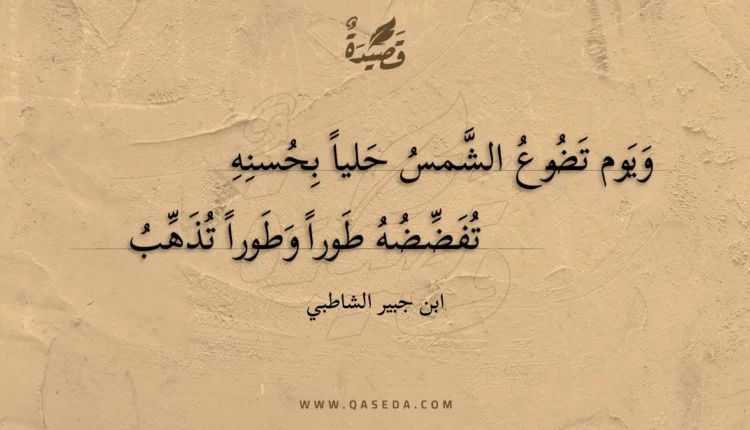 قَصِيدَةٌ
وَيَوم تَضُوعُ الشَّمسُ حَلياً بِحُسنِهِ
تُفَضِّضُهُ طَوراً وَطَوراً تُذَهِّبُ
ابن جبير الشاطبي
WWW.QASEDA.COM